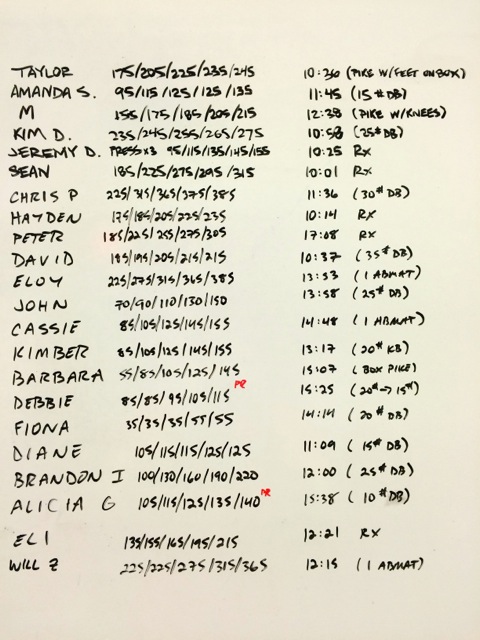 TAYLOR 175/205/225/235/245 10:36 (PIKE W/FEET ON BOX)
AMANDA S. 95/115/125/125/135 11:45 (15# DB)
M 155/175/185/205/215 12:38 (PIKE W/KNEES)
KIM D. 235/245/255/265/275 10:58 (25# DB)
JEREMY D. PRESS x3 95/115/135/145/155 10:25 RX
SEAN 185/225/275/295/315 10:01 RX
CHRIS P 225/315/365/375/385 11:36 (30# DB)
HAYDEN 175/185/205/225/235 10:14 RX
PETER 185/225/255/275/305 17:08 RX
DAVID 185/195/205/215/215 10:37 (35# DB)
ELOY 225/275/315/365/385 13:53 (1 ABMAT)
JOHN 70/90/110/130/150 13:58 (25# DB)
CASSIE 85/105/125/145/155 14:48 (1 ABMAT)
KIMBER 85/105/125/145/155 13:17 (20# KB)
BARBARA 55/85/105/125/145 15:07 (BOX PIKE)
DEBBIE 85/85/95/105/115 PR 15:25 (20# → 15#)
FIONA 35/35/35/55/55 14:14 (20# DB)
DIANE 105/115/115/125/125 11:09 (15# DB)
BRANDON I 100/130/160/190/220 12:00 (25# DB)
ALICIA G 105/115/125/135/140 PR 15:38 (10# DB)
ELI 135/155/165/195/215 12:21 RX
WILL Z 225/225/275/315/365 12:15 (1 ABMAT)